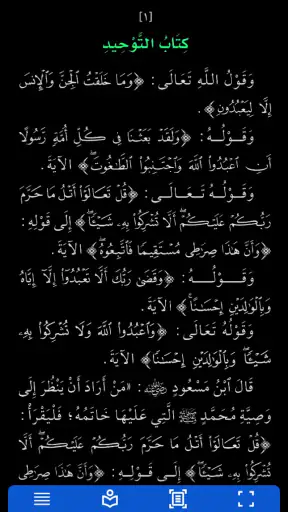 [١]
كِتَابُ التَّوْحِيدِ
وَقَوْلُ اللَّهِ تَعَالَى: ﴿وَمَا خَلَقْتُ ٱلْجِنَّ وَٱلْإِنسَ
إِلَّا لِيَعْبُدُونِ﴾.
وَقَوْلُهُ: ﴿وَلَقَدْ بَعَثْنَا فِي كُلِّ أُمَّةٍ رَّسُولًا
أَنِ ٱعْبُدُوا۟ ٱللَّهَ وَٱجْتَنِبُوا۟ ٱلطَّٰغُوتَۖ﴾ الآيَةَ.
وَقَوْلُهُ تَعَالَى: ﴿قُلْ تَعَالَوْا۟ أَتْلُ مَا حَرَّمَ
رَبُّكُمْ عَلَيْكُمْۖ أَلَّا تُشْرِكُوا۟ بِهِۦ شَيْـًٔاۖ﴾ إِلَى قَوْلِهِ:
﴿وَأَنَّ هَٰذَا صِرَٰطِى مُسْتَقِيمًا فَٱتَّبِعُوهُۖ﴾ الآيَةَ.
وَقَوْلُهُ: ﴿وَقَضَىٰ رَبُّكَ أَلَّا تَعْبُدُوٓا۟ إِلَّآ إِيَّاهُ
وَبِٱلْوَٰلِدَيْنِ إِحْسَٰنًاۚ﴾ الآيَةَ.
وَقَوْلُهُ تَعَالَى: ﴿وَٱعْبُدُوا۟ ٱللَّهَ وَلَا تُشْرِكُوا۟ بِهِۦ
شَيْـًٔاۖ وَبِٱلْوَٰلِدَيْنِ إِحْسَٰنًا﴾ الآيَةَ.
قَالَ ابْنُ مَسْعُودٍ ﷺ: «مَنْ أَرَادَ أَنْ يَنْظُرَ إِلَى
وَصِيَّةِ مُحَمَّدٍ ﷺ الَّتِي عَلَيْهَا خَاتَمُهُ؛ فَلْيَقْرَأْ:
﴿قُلْ تَعَالَوْا۟ أَتْلُ مَا حَرَّمَ رَبُّكُمْ عَلَيْكُمْۖ أَلَّا
تُشْرِكُوا۟ بِهِۦ شَيْـًٔاۖ﴾ إِلَى قَوْلِهِ: ﴿وَأَنَّ هَٰذَا صِرَٰطِى